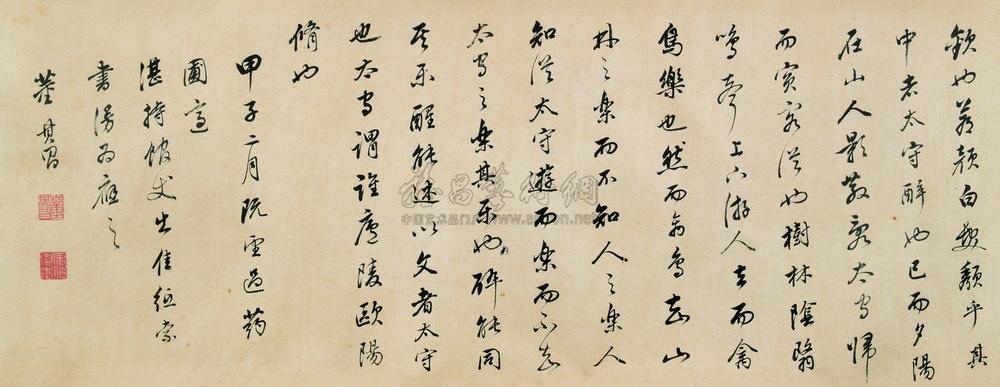 歡也蒼顏白髮頹乎其
中者太守醉也已而夕陽
在山人影散亂太守歸
而賓客從也樹林陰翳
鳴聲上下游人去而禽
鳥樂也然而禽鳥知山
林之樂而不知人之樂人
知從太守遊而樂而不知
太守之樂其樂也醉能同
其樂醒能述以文者太守
也太守謂誰廬陵歐陽
脩也
甲子二月阮雲過葯
圃適
湛持館丈出佳紙索
書漫為應之
董其昌
雅昌藝術網
中国艺术品门户 www.artron.net